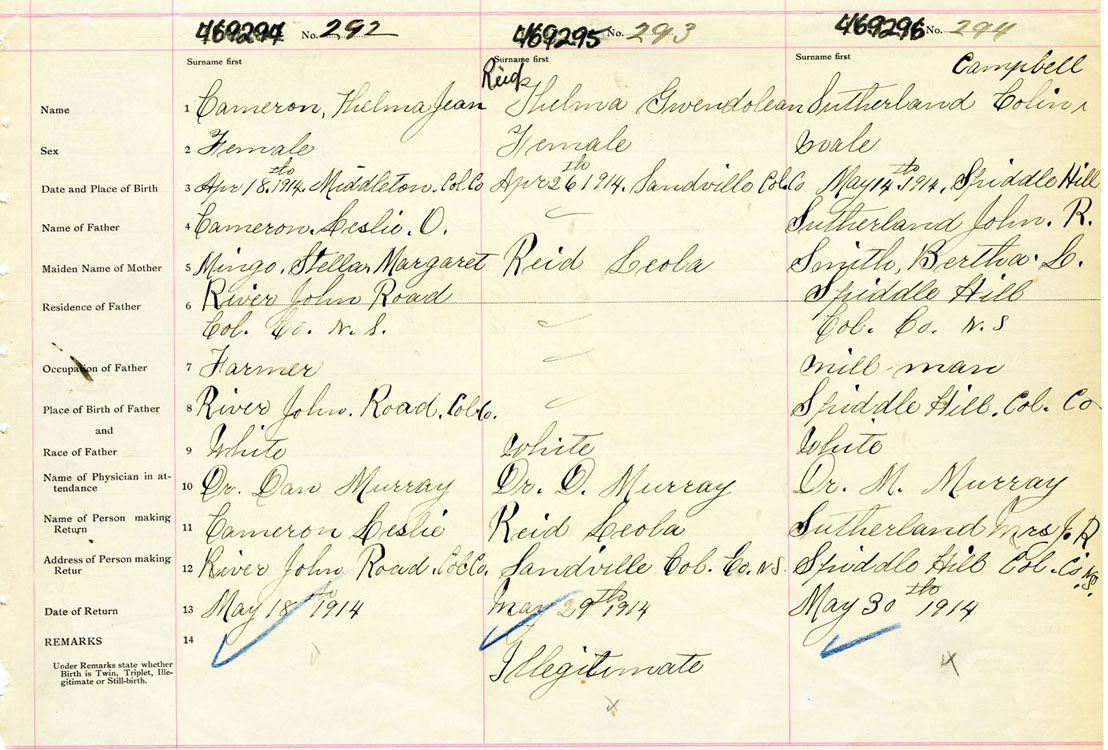 469294 No. 292 469295 No. 293 469296 No. 294
Surname first Surname first Surname first
Reid Campbell
Name 1 Cameron, Thelma Jean Thelma Gwendolean Sutherland Colin,
Sex 2 Female Female male
Date and Place of Birth 3 Apr 18th 1914. Middleton. Col. Co Apr 26th 1914. Sandville Col. Co May 14th 1914, Spiddle Hill
Name of Father 4 Cameron. Leslie. O. Sutherland John. R.
Maiden Name of Mother 5 Mingo. Stella Margaret Reid Leola Smith, Bertha. L.
Residence of Father 6 River John Road Spiddle Hill
Col. Co. N. S. Col. Co. N. S
Occupation of Father 7 Farmer mill-man
Place of Birth of Father 8 River John. Road. Col. Co. Spiddle Hill. Col. Co
and
Race of Father 9 White White White
Name of Physician in at-
tendance 10 Dr. Dan Murray Dr. D. Murray Dr. M. Murray
Name of Person making
Return 11 Cameron Leslie Reid Leola Sutherland Mrs J. R.
Address of Person making
Retur 12 River John Road. Col. Co. Sandville Col. Co. N S. Spiddle Hill Col. Co. N.S.
Date of Return 13 May 18th 1914 May 29th 1914 May 30th 1914
REMARKS 14
Under Remarks state whether
Birth is Twin, Triplet, Ille-
gitimate or Still-birth.
Illegitimate